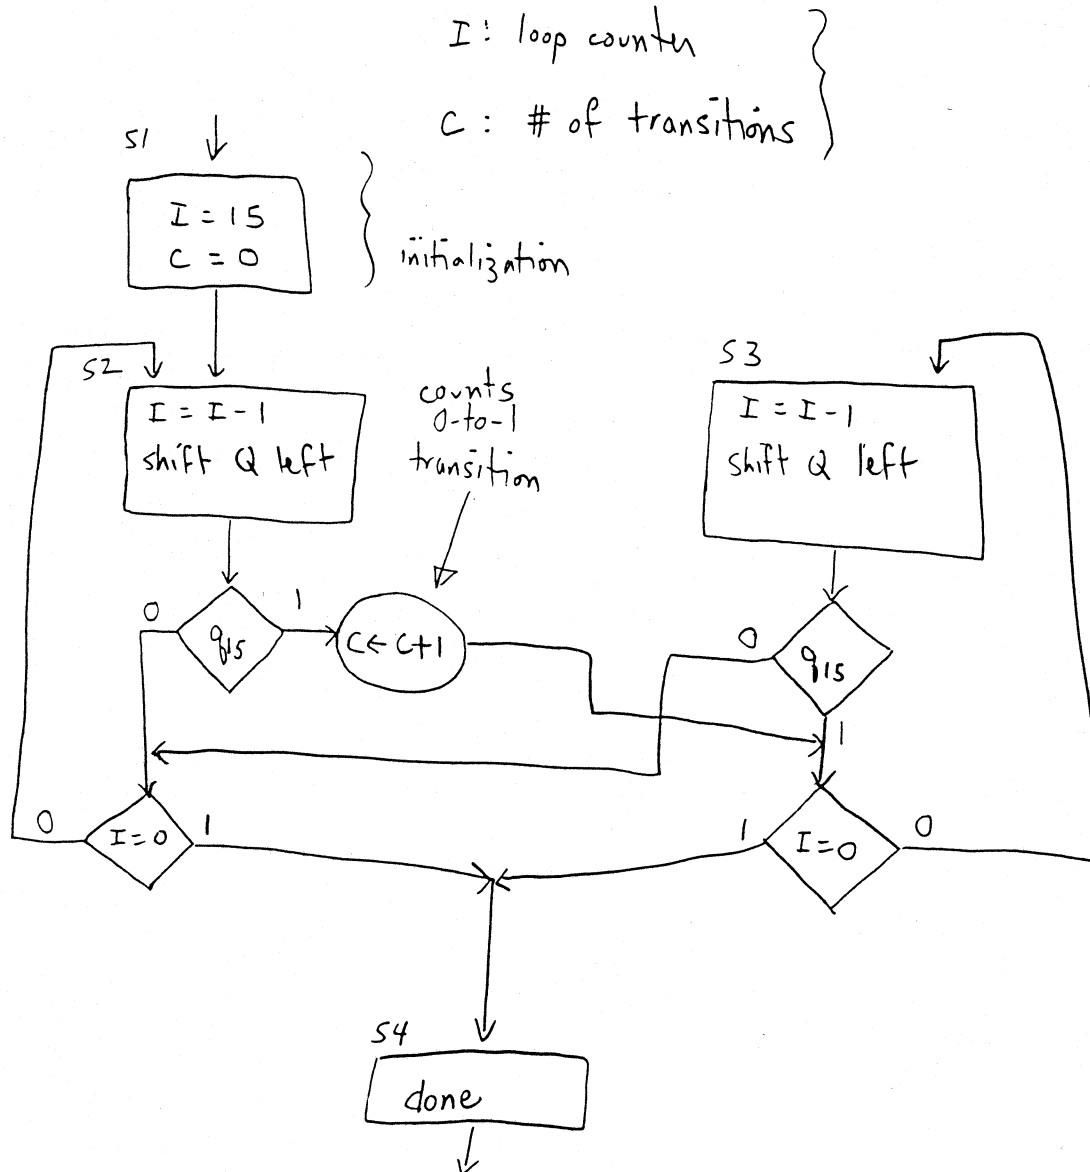 I: loop counter
C: # of transitions
S1
I = 15
C = 0
initialization
S2
I = I - 1
shift Q left
counts
0-to-1
transition
S3
I = I - 1
shift Q left
0
q15
1
C ← C+1
0
q15
1
0
I=0
1
1
I=0
0
S4
done